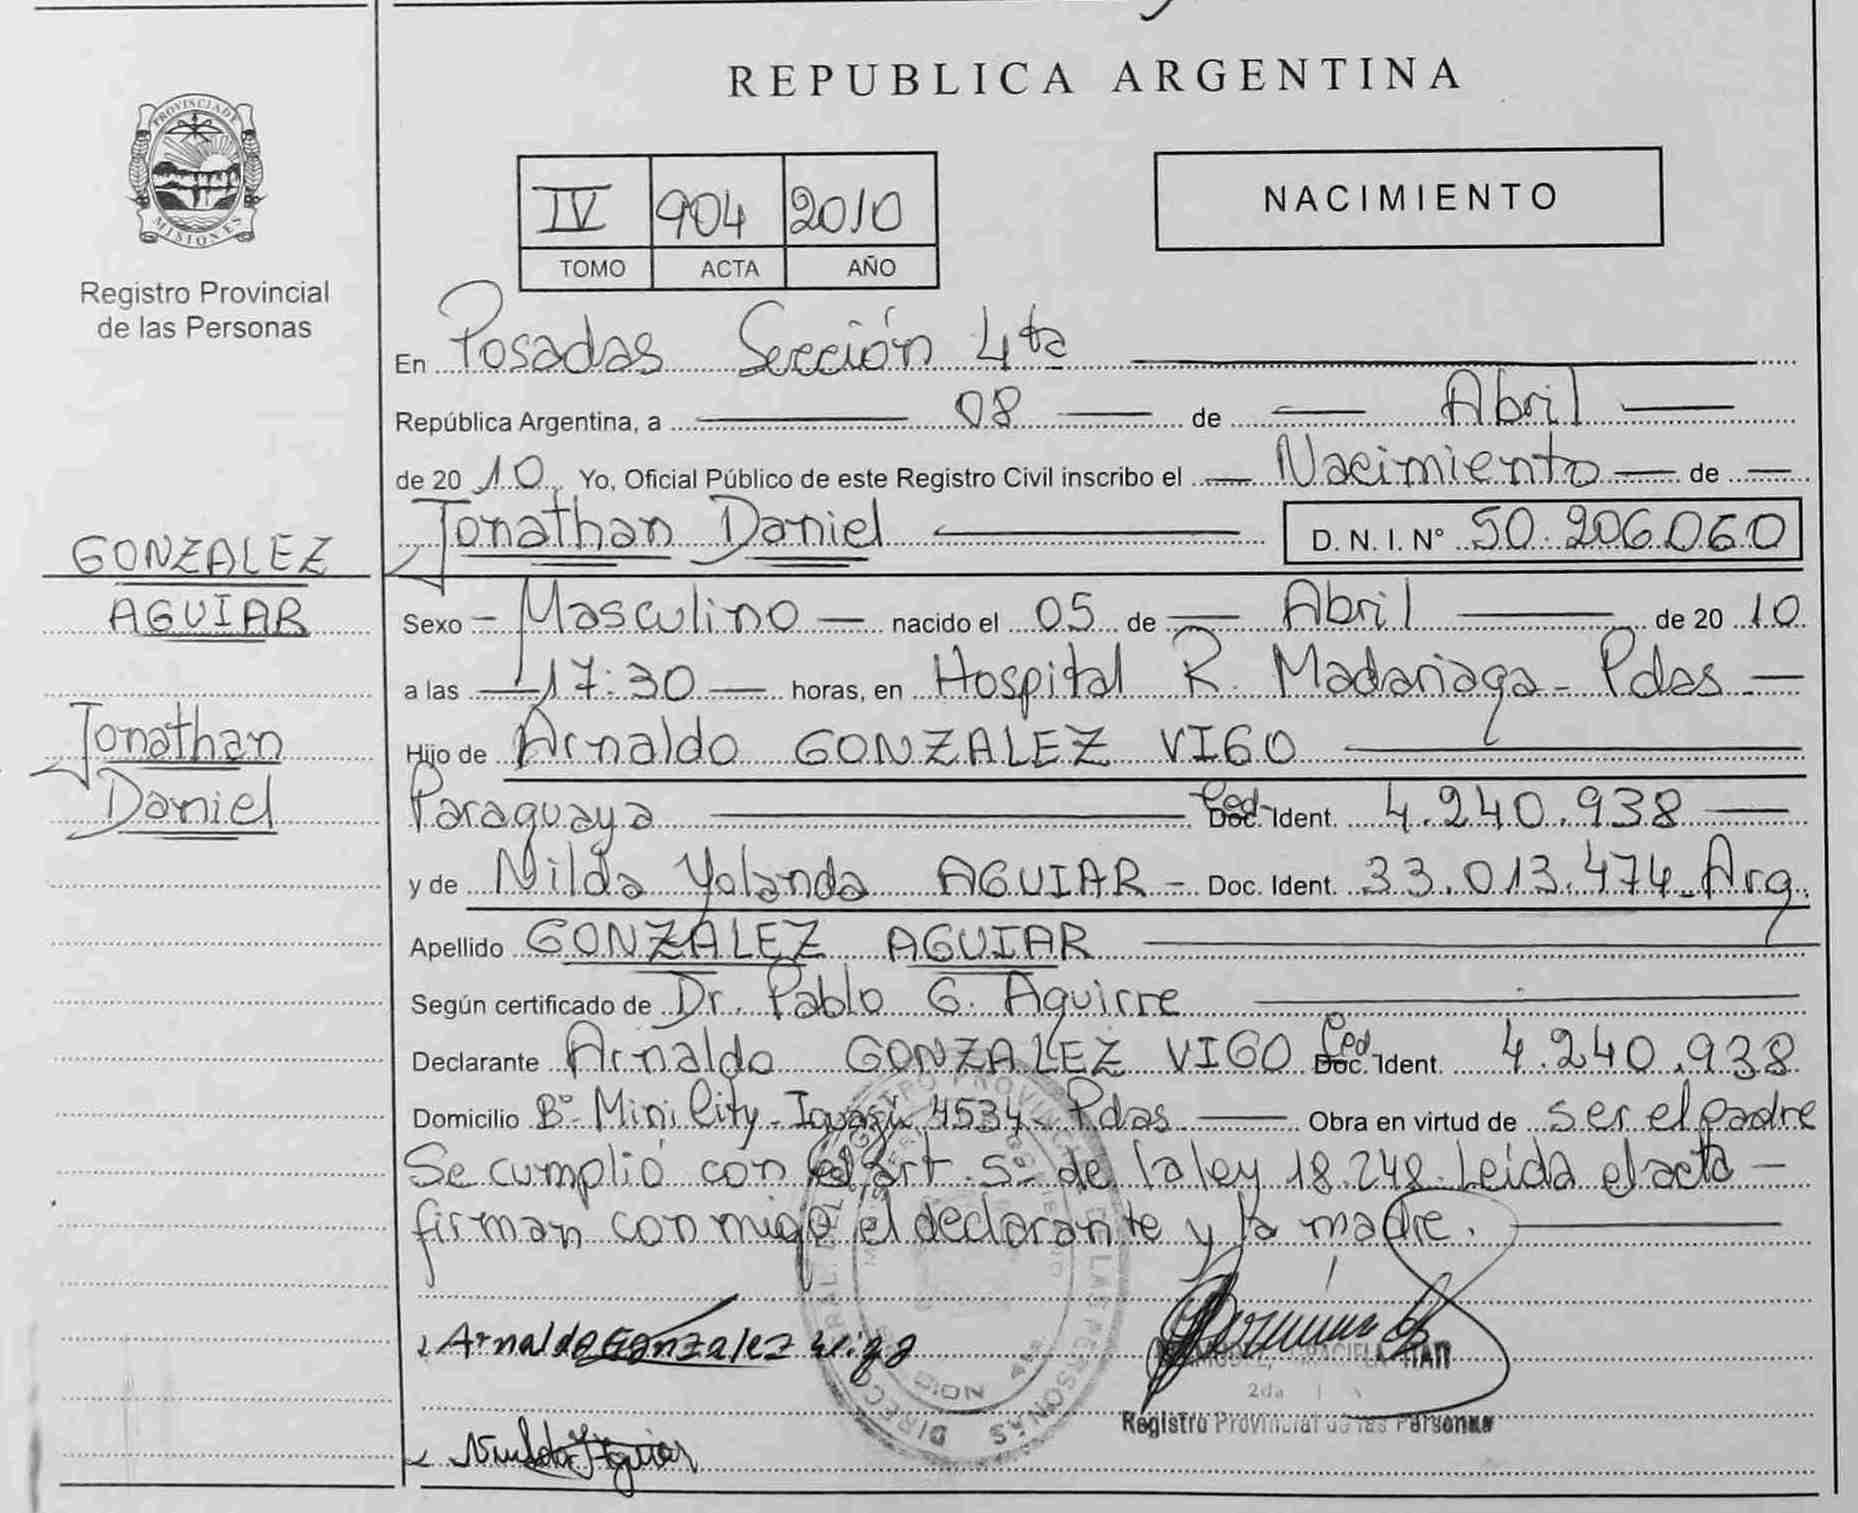 REPUBLICA ARGENTINA
PROVINCIA DE
MISIONES
Registro Provincial
de las Personas
IV 904 2010
TOMO ACTA AÑO
NACIMIENTO
En Posadas Sección 4ta
República Argentina, a 08 de Abril
de 20 10 Yo, Oficial Público de este Registro Civil inscribo el Nacimiento de
Jonathan Daniel D. N. I. N° 50.206.060
GONZALEZ
AGUIAR
Jonathan
Daniel
Sexo Masculino nacido el 05 de Abril de 20 10
a las 17:30 horas, en Hospital R. Madariaga - Pdas
Hijo de Arnaldo GONZALEZ VIGO
Paraguaya Ced. Doc. Ident. 4.240.938
y de Nilda Yolanda AGUIAR - Doc. Ident. 33.013.474 Arg.
Apellido GONZALEZ AGUIAR
Según certificado de Dr. Pablo G. Aguirre
Declarante Arnaldo GONZALEZ VIGO Ced. Doc. Ident. 4.240.938
Domicilio B° Mini City - Iguazú 4534 - Pdas Obra en virtud de ser el padre
Se cumplió con el art. 5° de la ley 18.248. Leída el acta
firman conmigo el declarante y la madre.
Arnaldo Gonzalez Vigo
GRACIELA
2da
Registro Provincial de las Personas
DE LAS PERSONAS